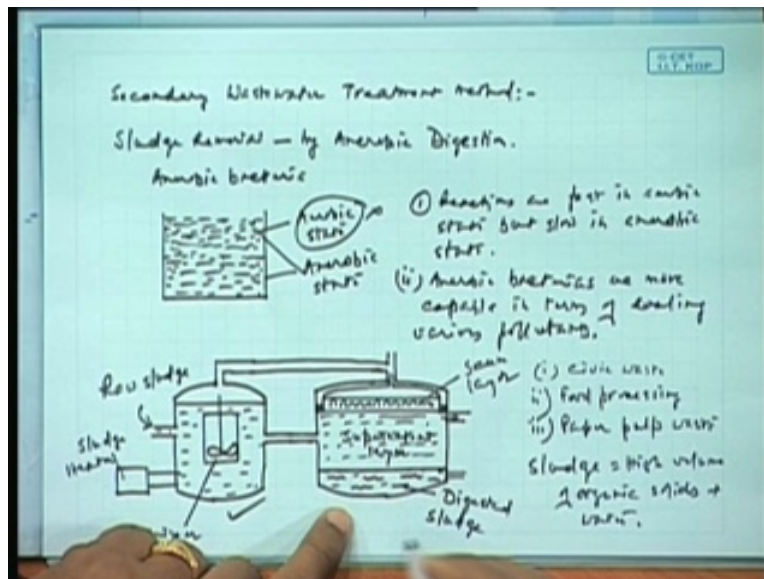 © CET
I.I.T. KGP
Secondary Wastewater Treatment Method:-
Sludge Removal — by Anerobic Digestion.
Anerobic bacteria
Aerobic
state
Anerobic
state
(i) Reactions are fast in aerobic
state but slow in anerobic
state.
(ii) Anerobic bacterias are more
capable in terms of
various pollutants.
Raw sludge
Sludge
heater
mixer
Scum
layer
Supernatant
layer
Digested
sludge
(i) Civic waste
ii) Food processing
iii) Paper pulp waste
Sludge = High volume
of organic solids +
water.